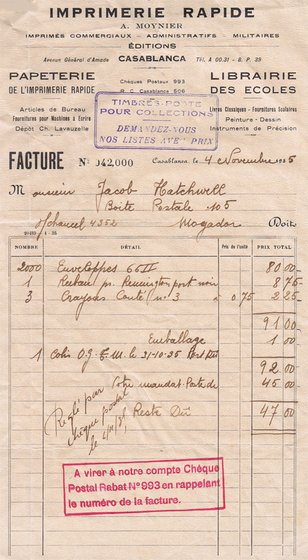 IMPRIMERIE RAPIDE
A. MOYNIER
IMPRIMÉS COMMERCIAUX - ADMINISTRATIFS - MILITAIRES
ÉDITIONS
Avenue Général d'Amade CASABLANCA Tél. A 00.31 - B. P. 29
PAPETERIE
DE L'IMPRIMERIE RAPIDE
Articles de Bureau
Fournitures pour Machines à Écrire
Dépôt Ch. Lavauzelle
Chèques Postaux 993
R. C. Casablanca 506
LIBRAIRIE
DES ECOLES
Livres Classiques - Fournitures Scolaires
Peinture - Dessin
Instruments de Précision
TIMBRES-POSTE
POUR COLLECTIONS
DEMANDEZ-NOUS
NOS LISTES AVEC PRIX
FACTURE N° 042,000 Casablanca, le 4 Novembre 1935
Monsieur Jacob Hatchwell
Boite Postale 105
4352 Mogador Doit:
NOMBRE DÉTAIL Prix de l'unité PRIX TOTAL
2000 Enveloppes 66 II 80 00
1 Ruban p. Remington port noir 8 75
3 Crayons Conté n° 3 à 0 75 2 25
91 00
Emballage 1 00
1 Colis O.G.E.M. le 31-10-35 Port Dû
92 00
Votre mandat-carte de 45 00
Reste Dû 47 00
Réglé par
chèque postal
A virer à notre compte Chèque
Postal Rabat N° 993 en rappelant
le numéro de la facture.